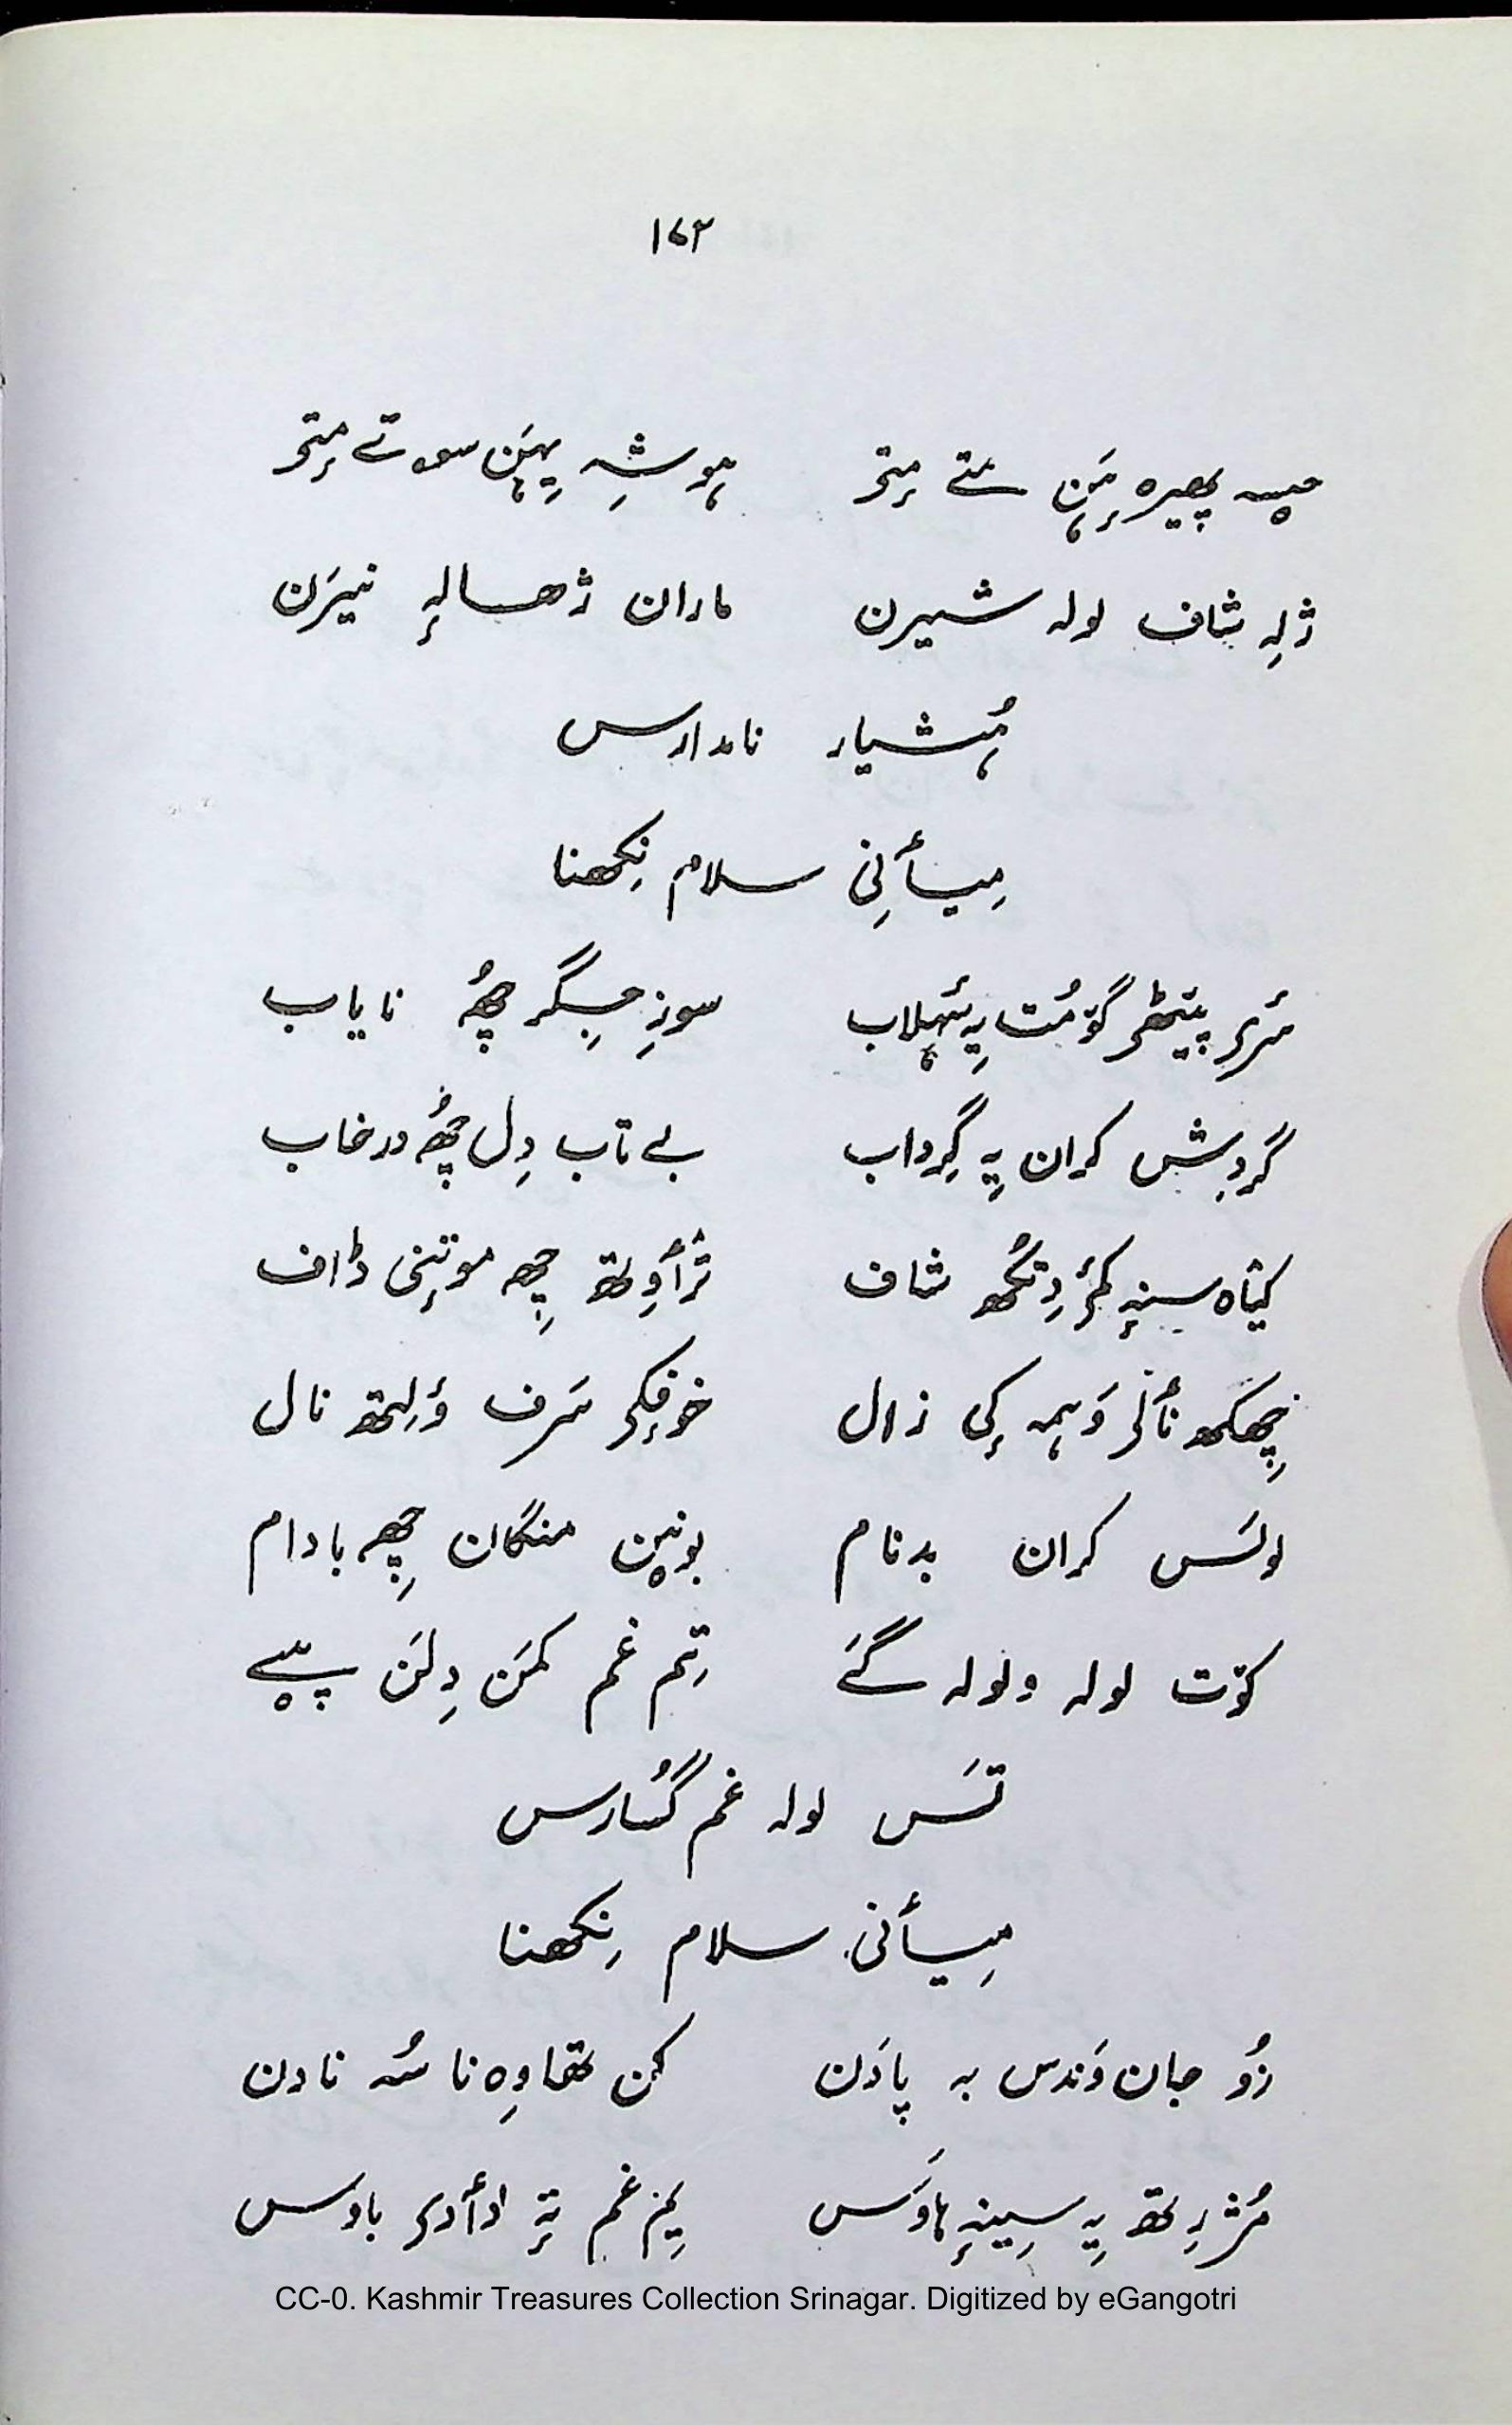 ۱۷۳
میہ پھیرہ ہَن متے متۍ ہوشہِ یِہَن سۄ تے متۍ
ژلہِ شاف لولہ شیرن ماران ژھالہٕ نیرَن
ہُشیار نامدارس
میأنِی سلام نِکھنا
سٔرۍ پیٚٹھۍ گوٚمُت یہِ سٔہلاب سوزِ جِگر چھُ نایاب
گردِش کران یہِ گِرداب بے تاب دِل چھُ در خاب
کیٛاہ سنہٕ کٔمۍ دِتُکھ شاف ترٛأوِتھ چھِ موتٕنۍ ڈاف
چھِکھ نٲلۍ وَہمہ کٕی زال خوفٕکۍ سَرف وٕلِتھ نال
لولَس کران بدنام بونیٚن منگان چھِ بادام
کوٚت لولہ ولولہ گے تِم غم کمَن دِلَن پییے
تَس لولہ غم گُسارس
میأنی سلام نِکھنا
زُو جان وَندس بہ پادَن کن تھاوِہ نا سُہ نادن
مُژرِتھ یہِ سیٖنہٕ ہاوَس یِم غم تہٕ دأدۍ باوس
CC-0. Kashmir Treasures Collection Srinagar. Digitized by eGangotri